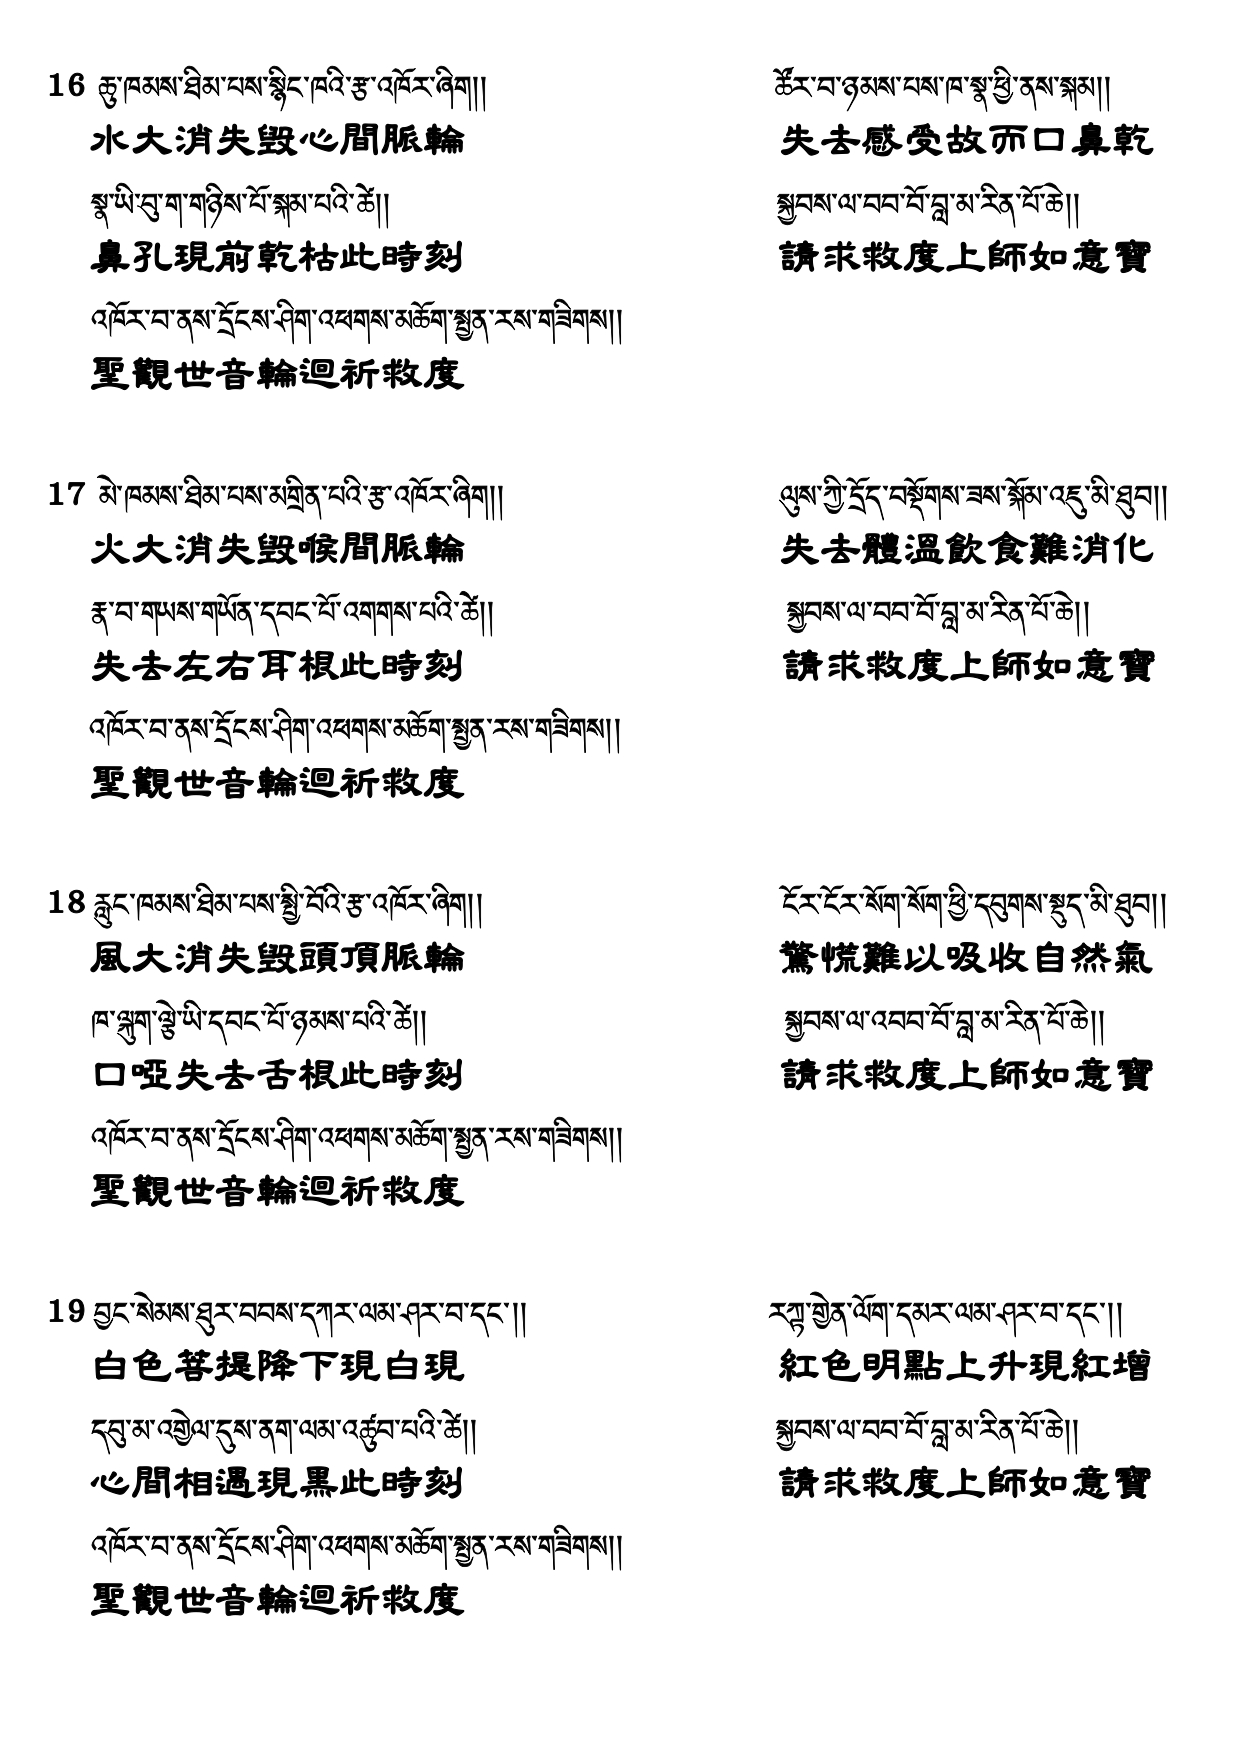 16 ཆུ་ཁམས་ཐིམ་པས་སྙིང་ཁའི་རྩ་འཁོར་ཞིག།། ཚོར་བ་ཉམས་པས་ཁ་སྣ་ཕྱི་ནས་སྐམ།།
水大消失毀心間脈輪 失去感受故而口鼻乾
སྣ་ཡི་བུ་ག་གཉིས་པོ་སྐམ་པའི་ཚེ།། སྐྱབས་ལ་བབ་བོ་བླ་མ་རིན་པོ་ཆེ།།
鼻孔現前乾枯此時刻 請求救度上師如意寶
འཁོར་བ་ནས་དྲོངས་ཤིག་འཕགས་མཆོག་སྤྱན་རས་གཟིགས།།
聖觀世音輪迴祈救度
17 མེ་ཁམས་ཐིམ་པས་མགྲིན་པའི་རྩ་འཁོར་ཞིག།། ལུས་ཀྱི་དྲོད་བསྡོགས་ཟས་སྐོམ་འཇུ་མི་ཐུབ།།
火大消失毀喉間脈輪 失去體溫飲食難消化
རྣ་བ་གཡས་གཡོན་དབང་པོ་འགགས་པའི་ཚེ།། སྐྱབས་ལ་བབ་བོ་བླ་མ་རིན་པོ་ཆེ།།
失去左右耳根此時刻 請求救度上師如意寶
འཁོར་བ་ནས་དྲོངས་ཤིག་འཕགས་མཆོག་སྤྱན་རས་གཟིགས།།
聖觀世音輪迴祈救度
18 རླུང་ཁམས་ཐིམ་པས་སྤྱི་བོའི་རྩ་འཁོར་ཞིག།། ངོར་ངོར་སོག་སོག་ཕྱི་དབུགས་སྡུད་མི་ཐུབ།།
風大消失毀頭頂脈輪 驚慌難以吸收自然氣
ཁ་ལྐུག་ལྕེ་ཡི་དབང་པོ་ཉམས་པའི་ཚེ།། སྐྱབས་ལ་འབབ་བོ་བླ་མ་རིན་པོ་ཆེ།།
口啞失去舌根此時刻 請求救度上師如意寶
འཁོར་བ་ནས་དྲོངས་ཤིག་འཕགས་མཆོག་སྤྱན་རས་གཟིགས།།
聖觀世音輪迴祈救度
19 བྱང་སེམས་ཐུར་བབས་དཀར་ལམ་ཤར་བ་དང་།། རཀྟ་གྱེན་ལོག་དམར་ལམ་ཤར་བ་དང་།།
白色菩提降下現白現 紅色明點上升現紅增
དབུ་མ་འགྱེལ་དུས་ནག་ལམ་འཚུབ་པའི་ཚེ།། སྐྱབས་ལ་བབ་བོ་བླ་མ་རིན་པོ་ཆེ།།
心間相遇現黑此時刻 請求救度上師如意寶
འཁོར་བ་ནས་དྲོངས་ཤིག་འཕགས་མཆོག་སྤྱན་རས་གཟིགས།།
聖觀世音輪迴祈救度